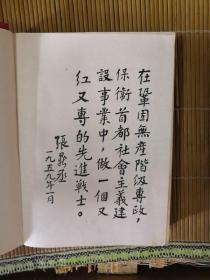 在鞏固無產階級專政，
保衛首都社會主義建
設事業中，做一個又
紅又專的先進戰士。
張鼎丞
一九五九年一月